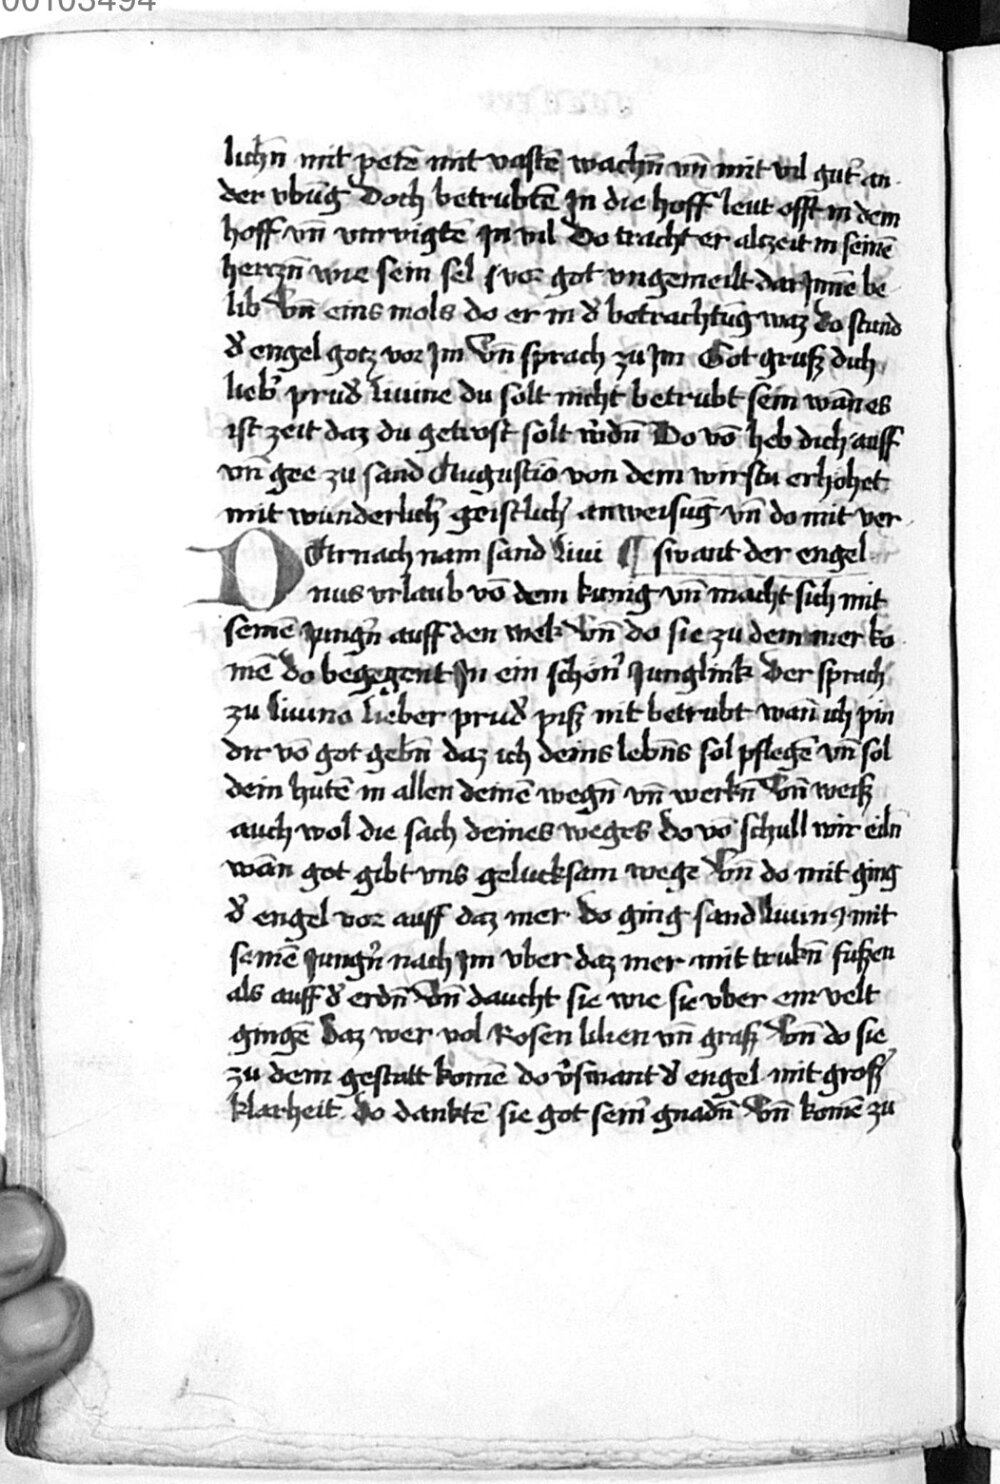 00103494
lichn̄ mit petē mit vastē wachn̄ vn̄ mit vil gut͛ an
der vbūg Doch betrubtē Jn die hoff leut offt in dem
hoff vn̄ vnrvigtē Jn vil Do tracht er alczeit in seinē
herczn̄ wie sein sel vor got vngemeilt dar Jnnē be
lib Vn̄ eins mols do er in d͛ betrachtūg waz do stund
d͛ engel gotz vor Jm Vn̄ sprach zu Jm Got grusz dich
lieb͛ prud͛ liuine du solt nicht betrubt sein wān es
ist zeit daz du getrost solt w͛dn̄ Do vō heb dich auff
vn̄ gee zu sand Augustīo von dem wirstu erhohet
mit wunderlich͛ geistlich͛ anweisūg vn̄ do mit ver
Darnach nam sand liui ¶ swant der engel
nus vrlaub vō dem kunig vn̄ macht sich mit
seinē Jungn̄ auff den wek Vn̄ do sie zu dem mer ko
mē do begegent Jn ein schon͛ Junglink Der sprach
zu liuino lieber prud͛ pisz nit betrubt wan̄ ich pin
dir vō got gebn̄ daz ich deins lebn̄s sol pflegē vn̄ sol
dein hutē in allen deinē wegn̄ vn̄ werkn̄ Vn̄ weisz
auch wol die sach deines weges do vō schull wir eiln̄
wān got gibt vns gelucksam wege Vn̄ do mit ging
d͛ engel vor auff daz mer do ging sand liuinꝰ mit
seinē Jungn̄ nach Jm vber daz mer mit trukn̄ fuszen
als auff d͛ erdn̄ Vn̄ daucht sie wie sie vber ein velt
gingē Daz wer vol Rosen lilien vn̄ grasz Vn̄ do sie
zu dem gestatt komē do v͛swant d͛ engel mit grosz͛
klarheit Do danktē sie got sein͛ gnadn̄ Vn̄ komē zu